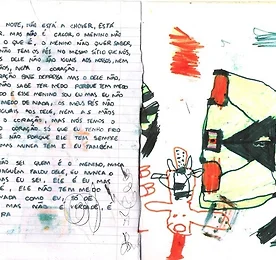 NOVE, NÃO ESTÁ A CHOVER, ESTÁ
MAS NÃO É CALOR, O MENINO NÃO
O QUE É, O MENINO NÃO QUER SABER,
NÃO TEM OS PÉS NO MESMO SÍTIO QUE NÓS,
DELE NÃO SÃO IGUAIS AOS NOSSOS, NEM
O CORAÇÃO.
DEPRESSA MAS O DELE NÃO,
NÃO SABE TER MEDO PORQUE TEM MEDO
E ESSE MENINO SOU EU MAS EU NÃO
MEDO DE NADA, OS MEUS PÉS NÃO
IGUAIS AOS DELE, NEM AS MÃOS
O CORAÇÃO, MAS NÓS TEMOS O
CORAÇÃO, SÓ QUE EU TENHO FRIO
PORQUE ELE TEM SEMPRE
MAS NUNCA TEM E EU TAMBÉM
NÃO SEI QUEM É O MENINO, NUNCA
NINGUÉM FALOU DELE, EU NUNCA O
MAS EU SEI, ELE É EU, MAS
ELE NÃO TEM MEDO
NADA COMO EU, SÓ DE
MAS NÃO É VERDADE, É
B
B
L